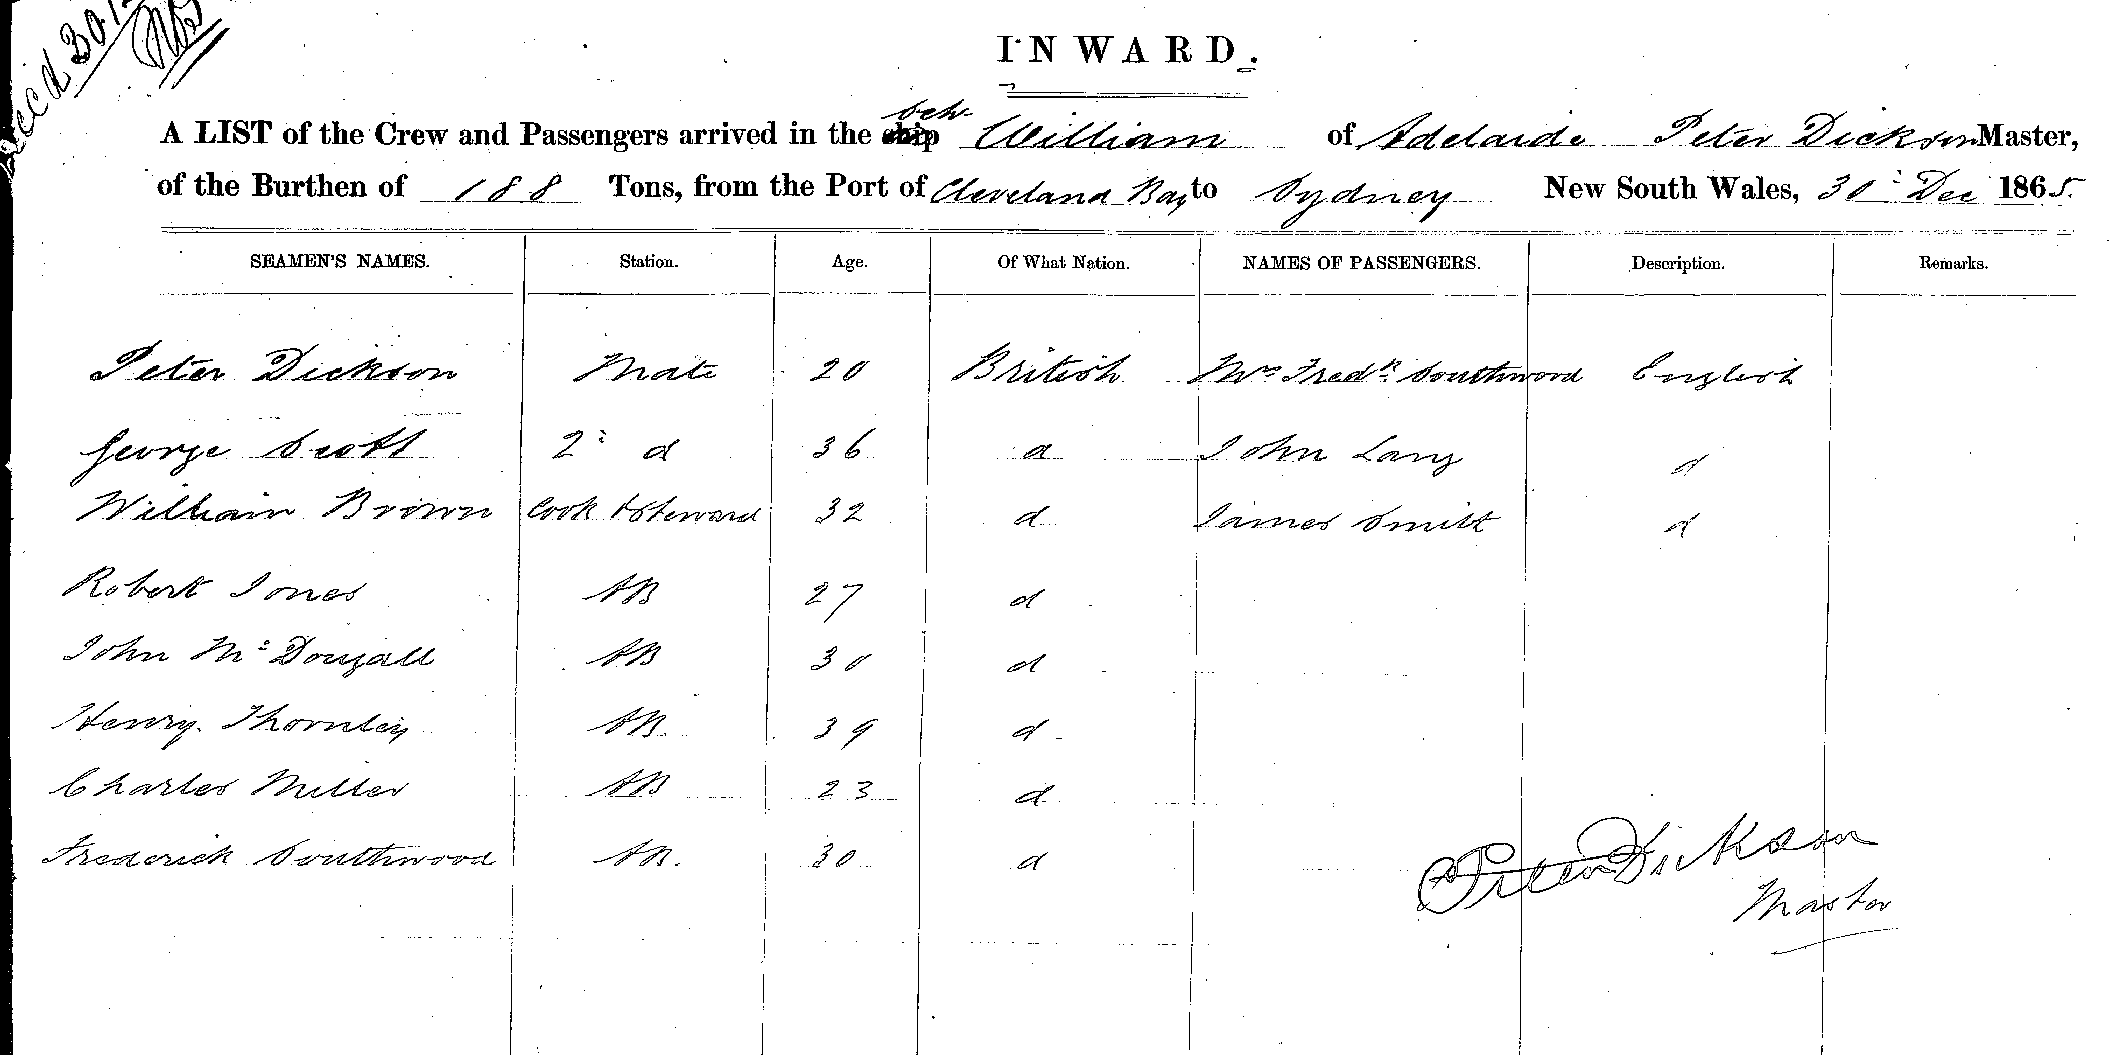 Recd 30.12
INWARD.
sch.
A LIST of the Crew and Passengers arrived in the ship William of Adelaide Peter Dickson Master,
of the Burthen of 188 Tons, from the Port of Cleveland Bay to Sydney New South Wales, 30: Dec 1865.
SEAMEN'S NAMES. Station. Age. Of What Nation. NAMES OF PASSENGERS. Description. Remarks.
Peter Dickson Mate 20 British Mrs Fredk Southwood English
George Scott 2: d 36 d John Lang d
William Brown Cook & Steward 32 d James Smith d
Robert Jones AB 27 d
John Mc Dougall AB 30 d
Henry Thornley AB. 39 d
Charles Miller AB 23 d
Frederick Southwood AB. 30 d
Peter Dickson
Master